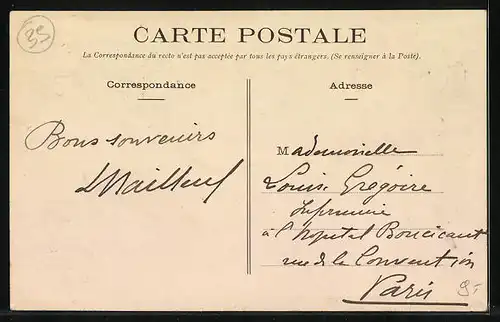 35
CARTE POSTALE
La Correspondance du recto n'est pas acceptée par tous les pays étrangers. (Se renseigner à la Poste).
Correspondance
Adresse
Bons souvenirs
Mademoiselle
Louise Grégoire
à l'hopital Boucicaut
rue de la Convention
Paris